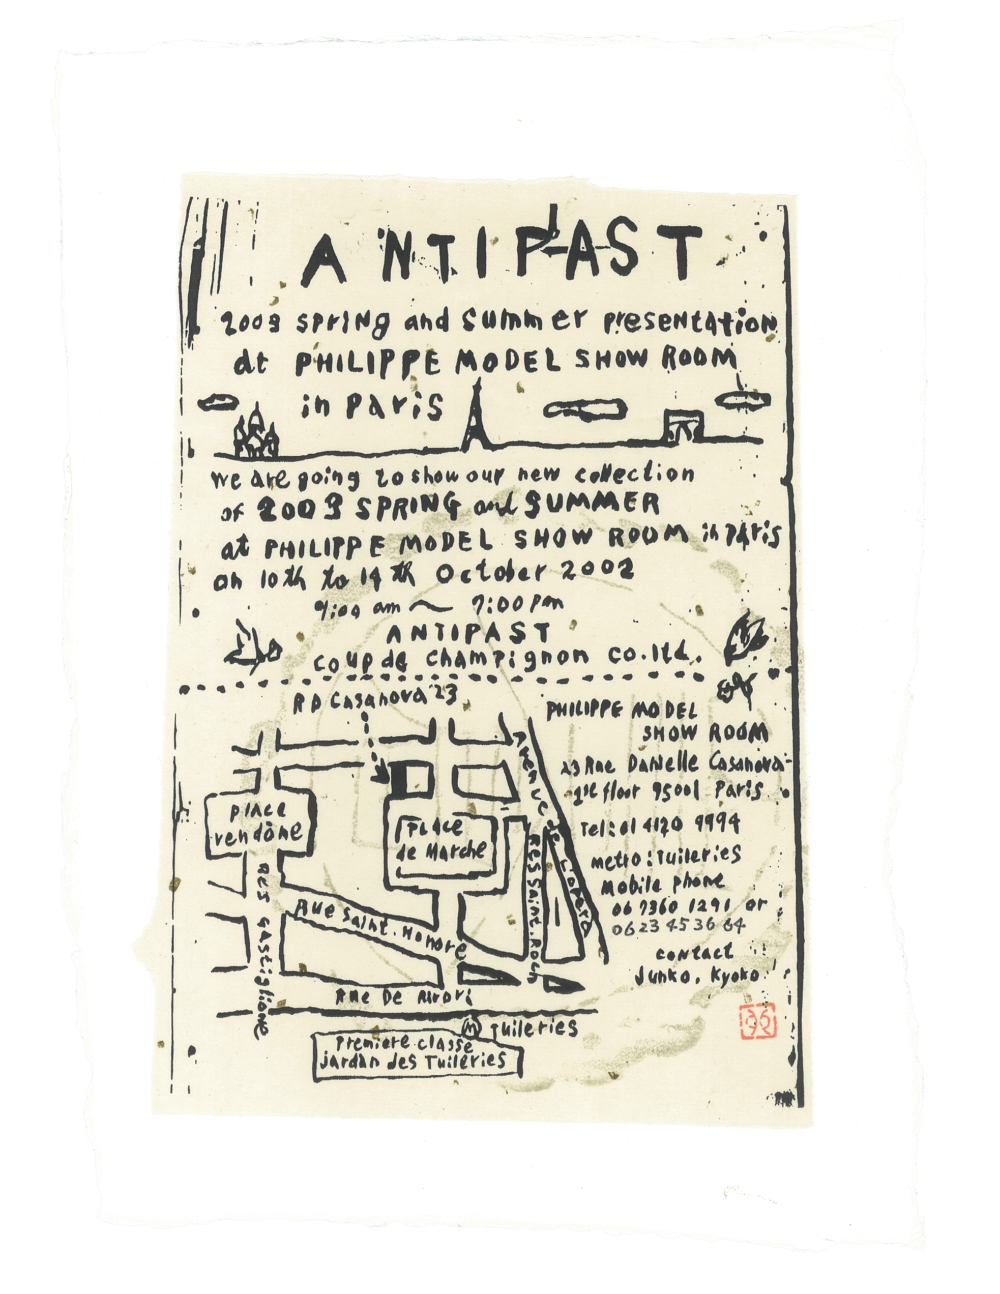 ANTIPAST
2003 SPRING and SUMMER PRESENTATION
at PHILIPPE MODEL SHOW ROOM
in PARIS
we are going to show our new collection
of 2003 SPRING and SUMMER
at PHILIPPE MODEL SHOW ROOM in PARIS
on 10th to 14th October 2002
9:00 am ~ 7:00 pm
ANTIPAST
coup de champignon co.ltd.
R D Casanova 23
PHILIPPE MODEL
SHOW ROOM
23 Rue Danielle Casanova
1st floor 75001 Paris
Tel: 01 4120 9994
metro: Tuileries
Mobile phone
06 7360 1291 or
06 23 45 36 64
contact
Junko, Kyoko
Avenue de l'opera
place
vendôme
PLACE
de Marche
RES Saint. Roch
RES Gastiglione
Rue Saint. Honore
Rue De Rivori
M Tuileries
Premiere classe
jardan des Tuileries